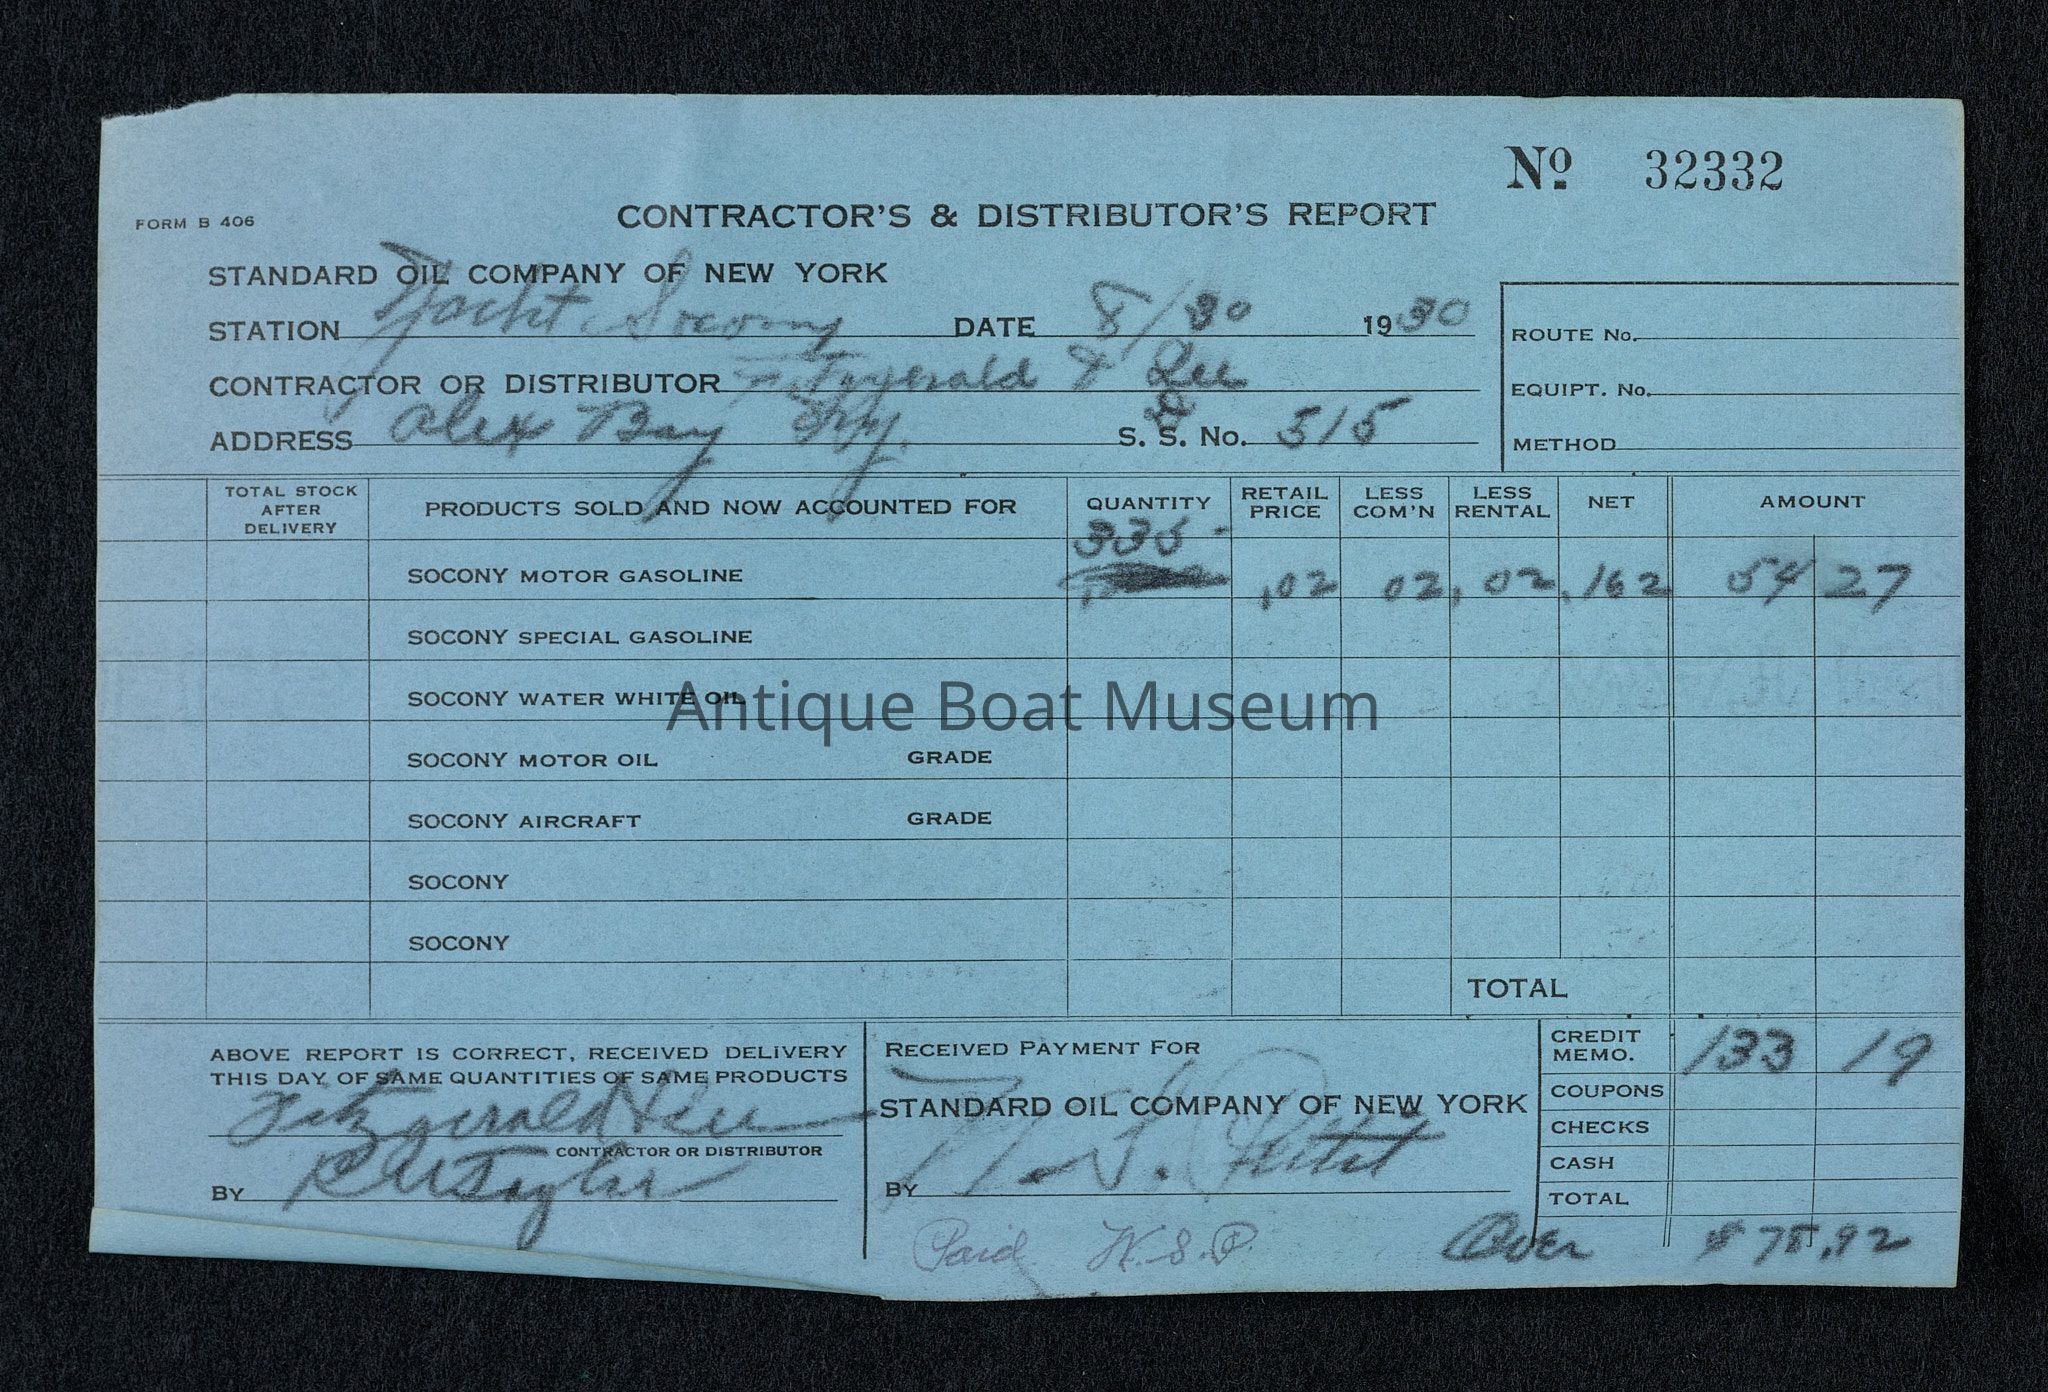 No 32332
FORM B 406
CONTRACTOR'S & DISTRIBUTOR'S REPORT
STANDARD OIL COMPANY OF NEW YORK
STATION Yacht Socony DATE 8/30 1930
ROUTE No.
CONTRACTOR OR DISTRIBUTOR Fitzgerald & Lee
EQUIPT. No.
ADDRESS Alex Bay N.Y. S. S. No. 515
METHOD
TOTAL STOCK AFTER DELIVERY PRODUCTS SOLD AND NOW ACCOUNTED FOR QUANTITY RETAIL PRICE LESS COM'N LESS RENTAL NET AMOUNT
335-
SOCONY MOTOR GASOLINE .02 02 .02 .162 54 27
SOCONY SPECIAL GASOLINE
SOCONY WATER WHITE OIL
Antique Boat Museum
SOCONY MOTOR OIL GRADE
SOCONY AIRCRAFT GRADE
SOCONY
SOCONY
TOTAL
ABOVE REPORT IS CORRECT, RECEIVED DELIVERY
THIS DAY OF SAME QUANTITIES OF SAME PRODUCTS
Fitzgerald & Lee
CONTRACTOR OR DISTRIBUTOR
BY Taylor
RECEIVED PAYMENT FOR
STANDARD OIL COMPANY OF NEW YORK
BY
Paid W.S.P.
CREDIT MEMO. 133 19
COUPONS
CHECKS
CASH
TOTAL
Over $78.92